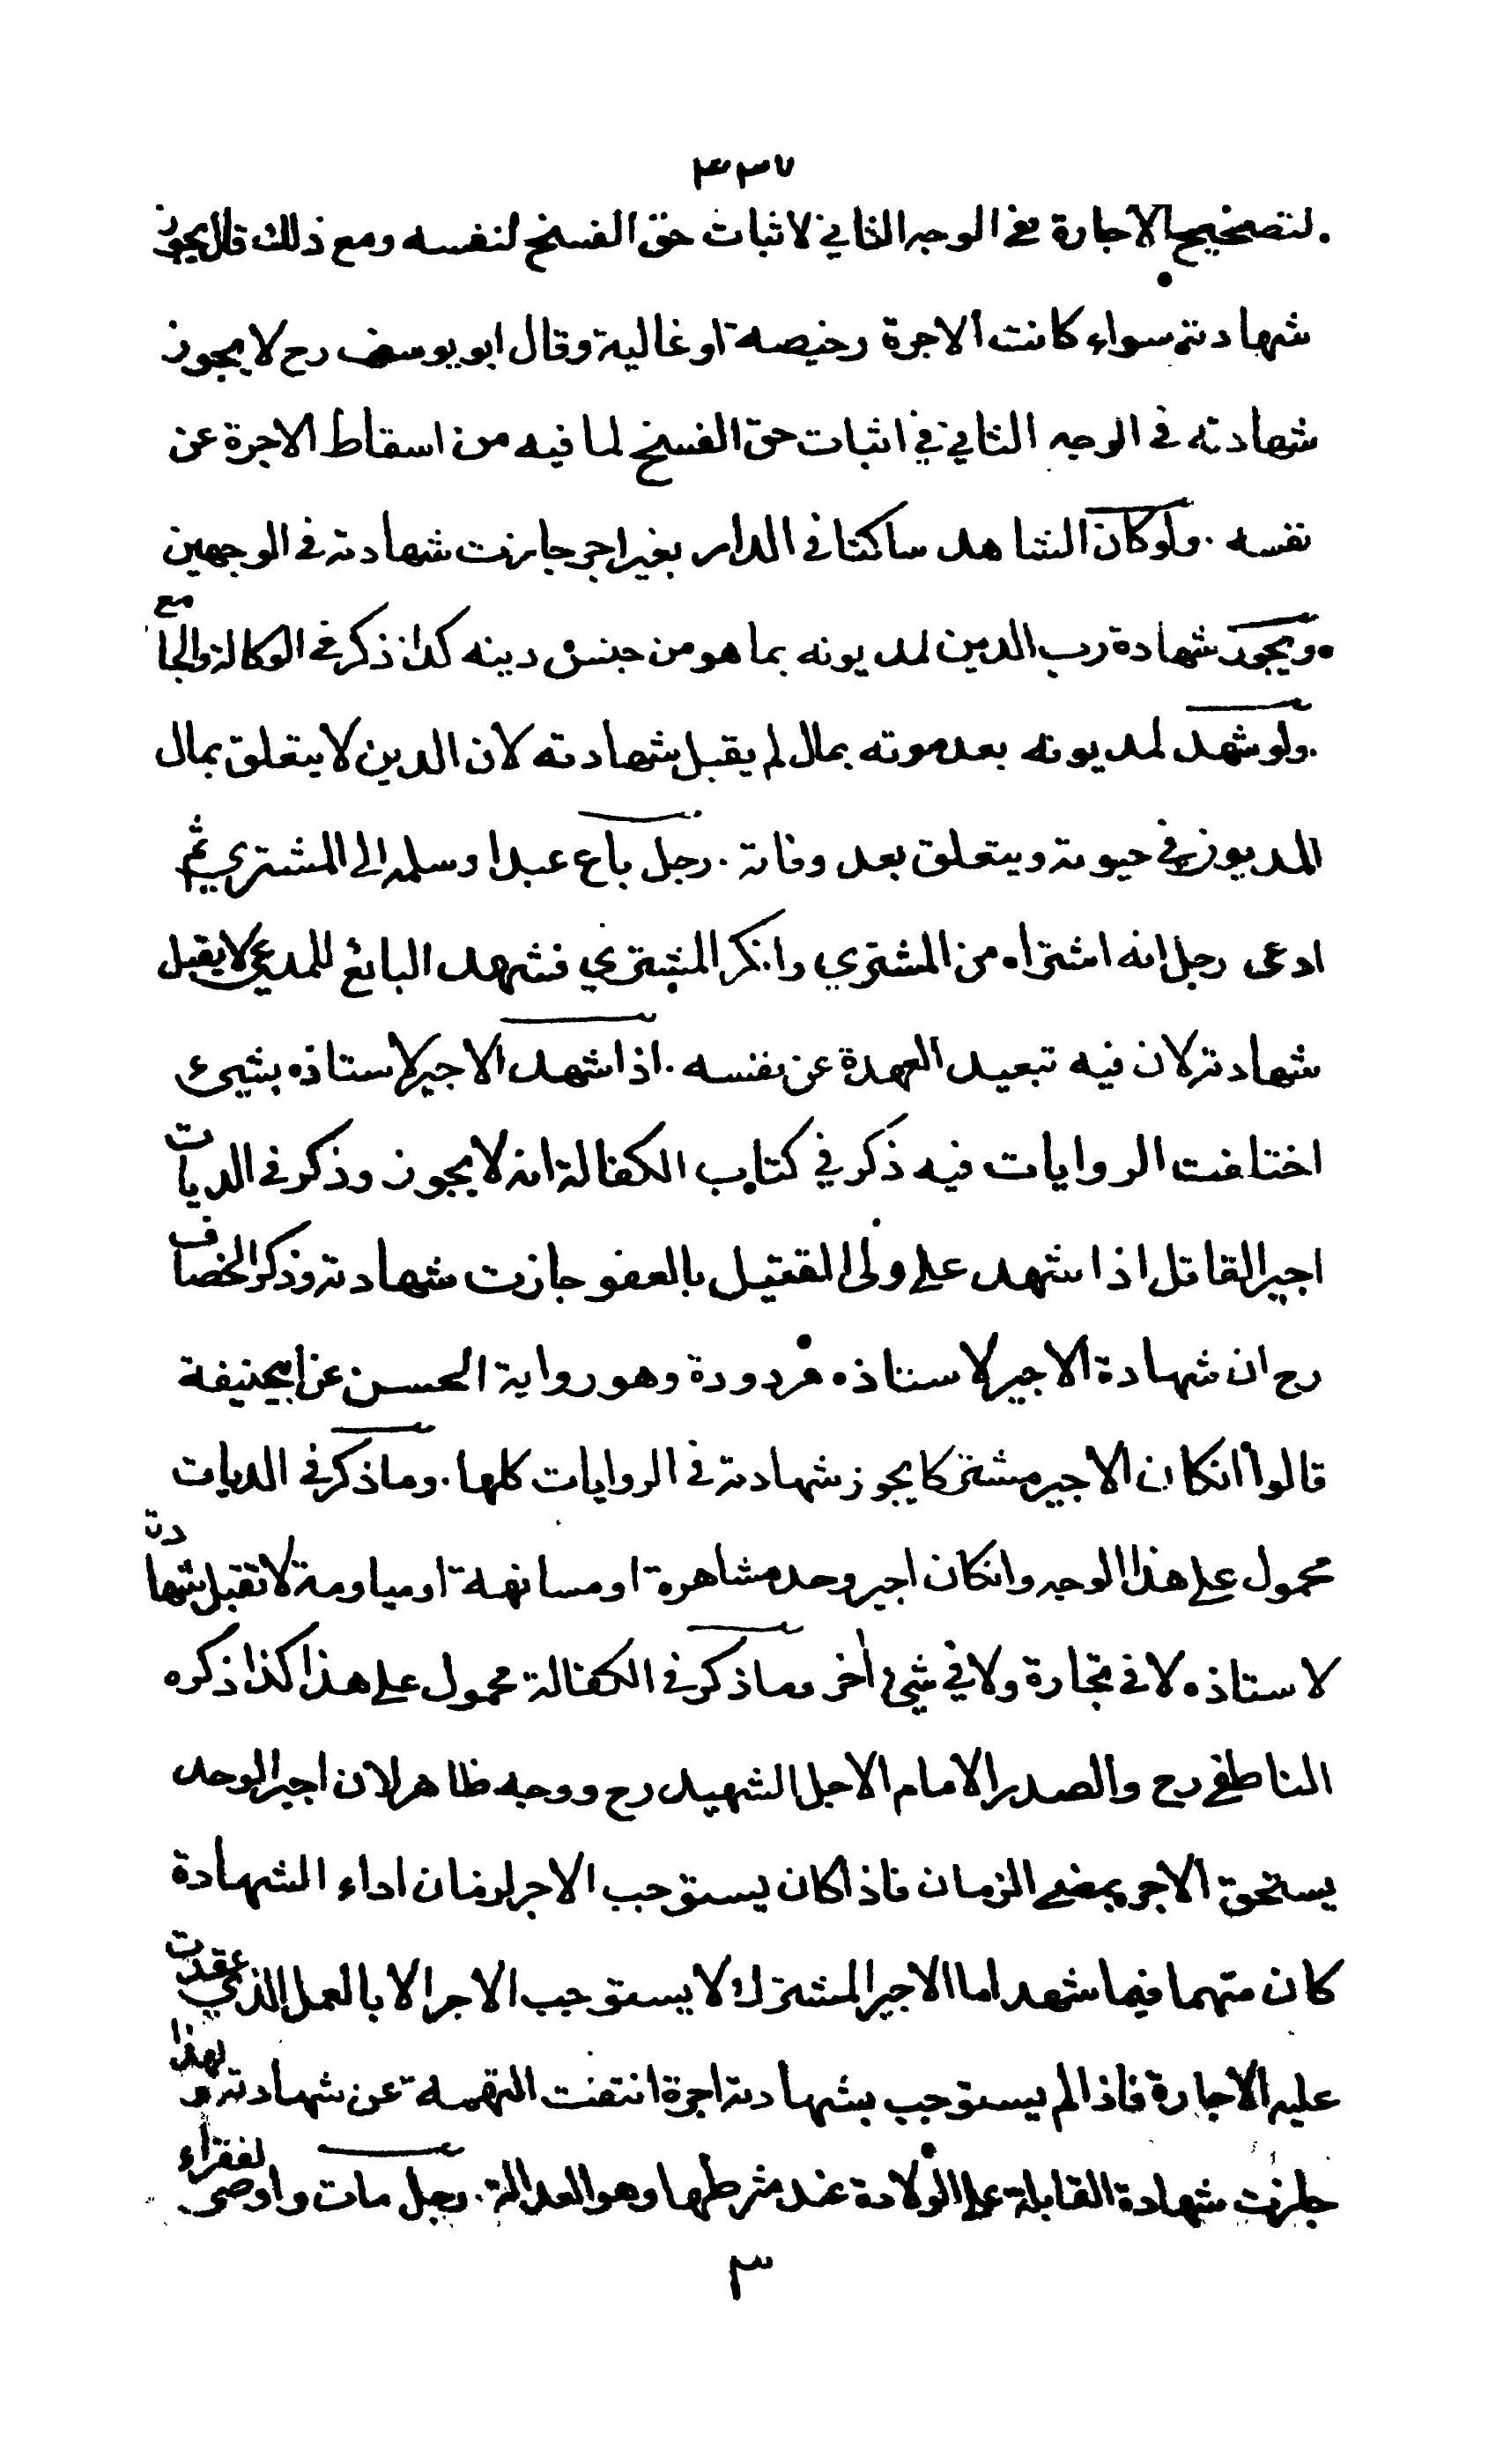 ٣٣٧
لتصحيح الاجارة في الوجه الثاني لاثبات حق الفسخ لنفسه ومع ذلك قال يجوز
شهادته سواء كانت الاجرة رخيصة او غالية وقال ابو يوسف رح لا يجوز
شهادته في الوجه الثاني في اثبات حق الفسخ لما فيه من اسقاط الاجرة عن
نفسه . ولو كان الشاهد ساكنا في الدار بغير اجر جازت شهادته في الوجهين
ويجوز شهادة رب الدين لمديونه بما هو من جنس دينه كذا ذكر في الوكالة والجامع
. ولو شهد لمديونه بعد موته بمال لم يقبل شهادته لان الدين لا يتعلق بمال
المديون في حيوته ويتعلق بعد وفاته . رجل باع عبدا وسلمه الى المشتري ثم
ادعى رجل انه اشتراه من المشتري وانكر المشتري فشهد البائع للمدعي لا يقبل
شهادته لان فيه تبعيد العهدة عن نفسه . اذا شهد الاجير لاستاذه بشيئ
اختلفت الروايات فيه ذكر في كتاب الكفالة انه لا يجوز وذكر في الديات
اجير القاتل اذا شهد على ولى القتيل بالعفو جازت شهادته وذكر الخصاف
رح ان شهادة الاجير لاستاذه مردودة وهو رواية الحسن عن ابيحنيفة
قالوا انكان الاجير مشتركا يجوز شهادته في الروايات كلها . وما ذكر في الديات
محمول على هذا الوجه وانكان اجير وحد مشاهرة او مسانهة او مياومة لا تقبل شهادته
لاستاذه لا في تجارة ولا في شيئ أخر وما ذكر في الكفالة محمول على هذا كذا ذكره
الناطفي رح والصدر الامام الاجل الشهيد رح ووجه ظاهر لان اجير الوحد
يستحق الاجر بمضي الزمان فاذا كان يستوجب الاجر لزمان اداء الشهادة
كان متهما فيما شهد اما الاجير المشترك لا يستوجب الاجر الا بالعمل الذي عقدت
عليه الاجارة فاذا لم يستوجب بشهادته اجرة انتفت التهمة عن شهادته ولهذا
جازت شهادة القابلة على الولادة عند شرطها وهو العدالة . رجل مات واوصى لفقراء
٣